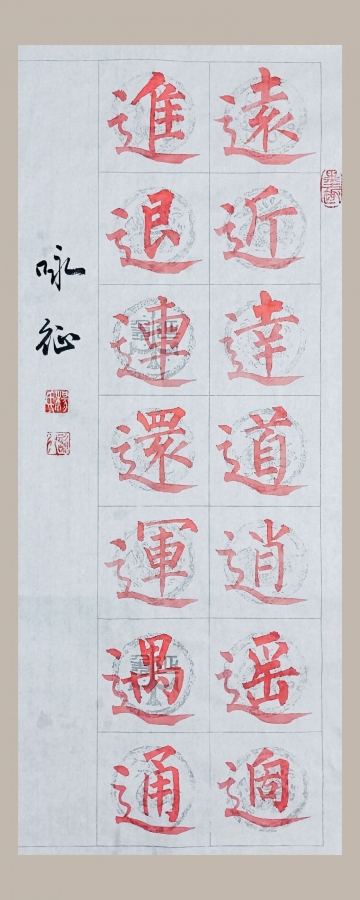 遠近逹道逍遥逈
進退連還運遇通
咏征